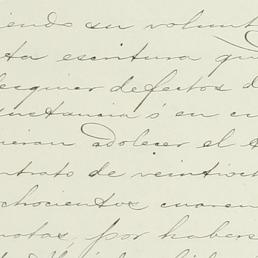 iendo su volunt
ta escritura qu
esquier defectos d
ustancia ó en cu
ieran adolecer el c
ntrato de veintioc
chocientos cuaren
notas, por haberse